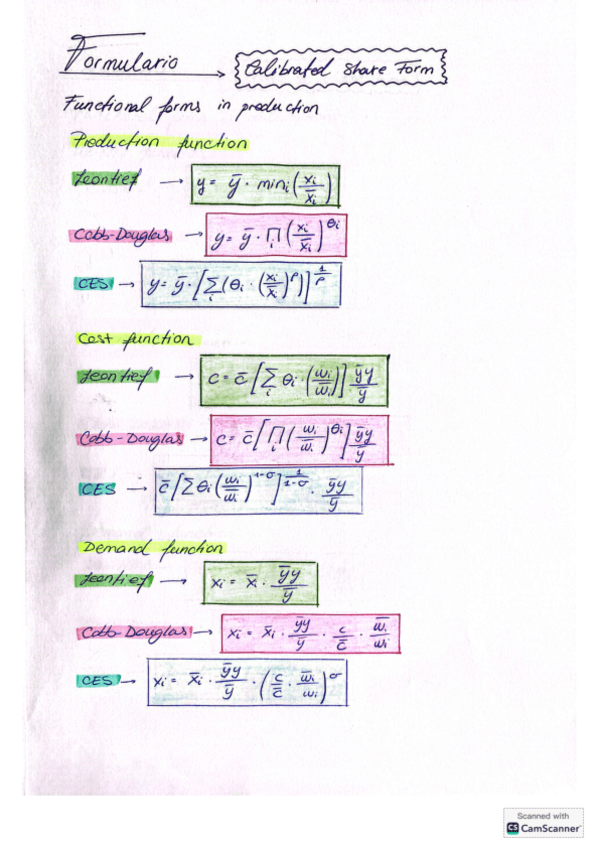 Formulario → Calibrated Share Form
Functional forms in production
Production function
Leontief → y = ȳ · minᵢ (xᵢ / x̄ᵢ)
Cobb-Douglas → y = ȳ · ∏ᵢ (xᵢ / x̄ᵢ)^θᵢ
CES → y = ȳ · [∑ᵢ (θᵢ · (xᵢ / x̄ᵢ)^ρ)]^(1/ρ)
Cost function
Leontief → c = c̄ [∑ᵢ θᵢ · (wᵢ / w̄ᵢ)] ȳy / ȳ
Cobb-Douglas → c = c̄ [∏ᵢ (wᵢ / w̄ᵢ)^θᵢ] ȳy / ȳ
CES → c̄ [∑ θᵢ (wᵢ / w̄ᵢ)^(1-σ)]^(1/(1-σ)) · ȳy / ȳ
Demand function
Leontief → xᵢ = x̄ᵢ · ȳy / ȳ
Cobb-Douglas → xᵢ = x̄ᵢ · ȳy / ȳ · c / c̄ · w̄ᵢ / wᵢ
CES → xᵢ = x̄ᵢ · ȳy / ȳ · (c / c̄ · w̄ᵢ / wᵢ)^σ
Scanned with
CS CamScanner